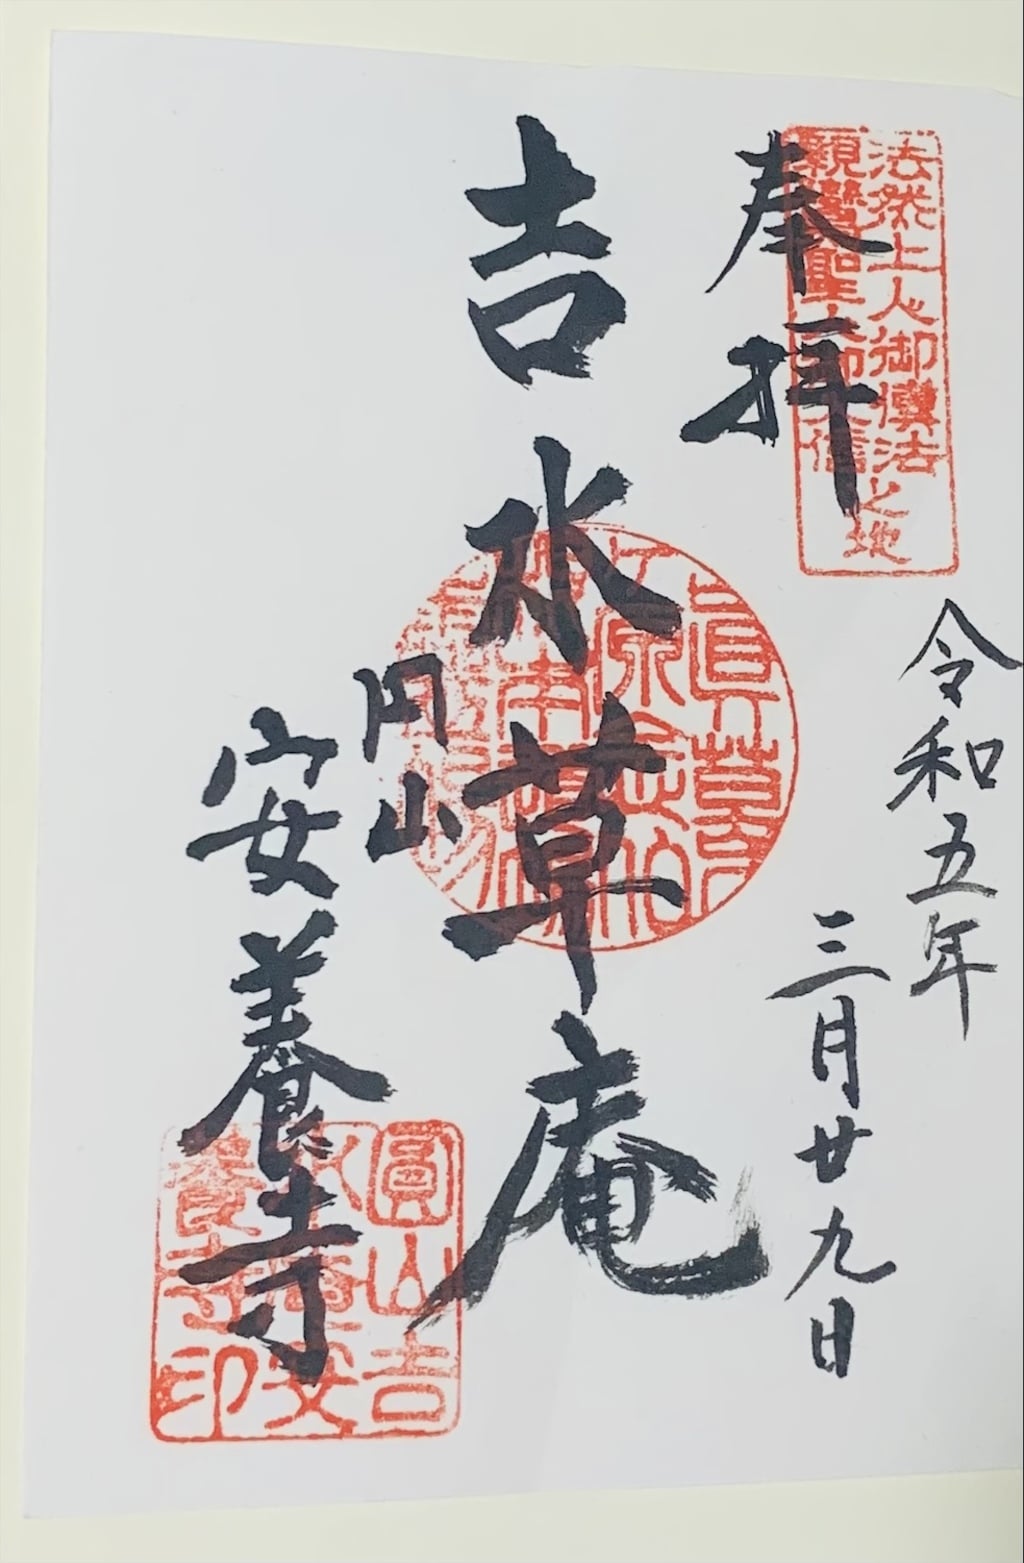 法然上人御傳法之地
親鸞聖人御入信之地
奉拝
令和五年
三月廿九日
吉水草庵
円山
安養寺
圓山吉
水
安
養寺印